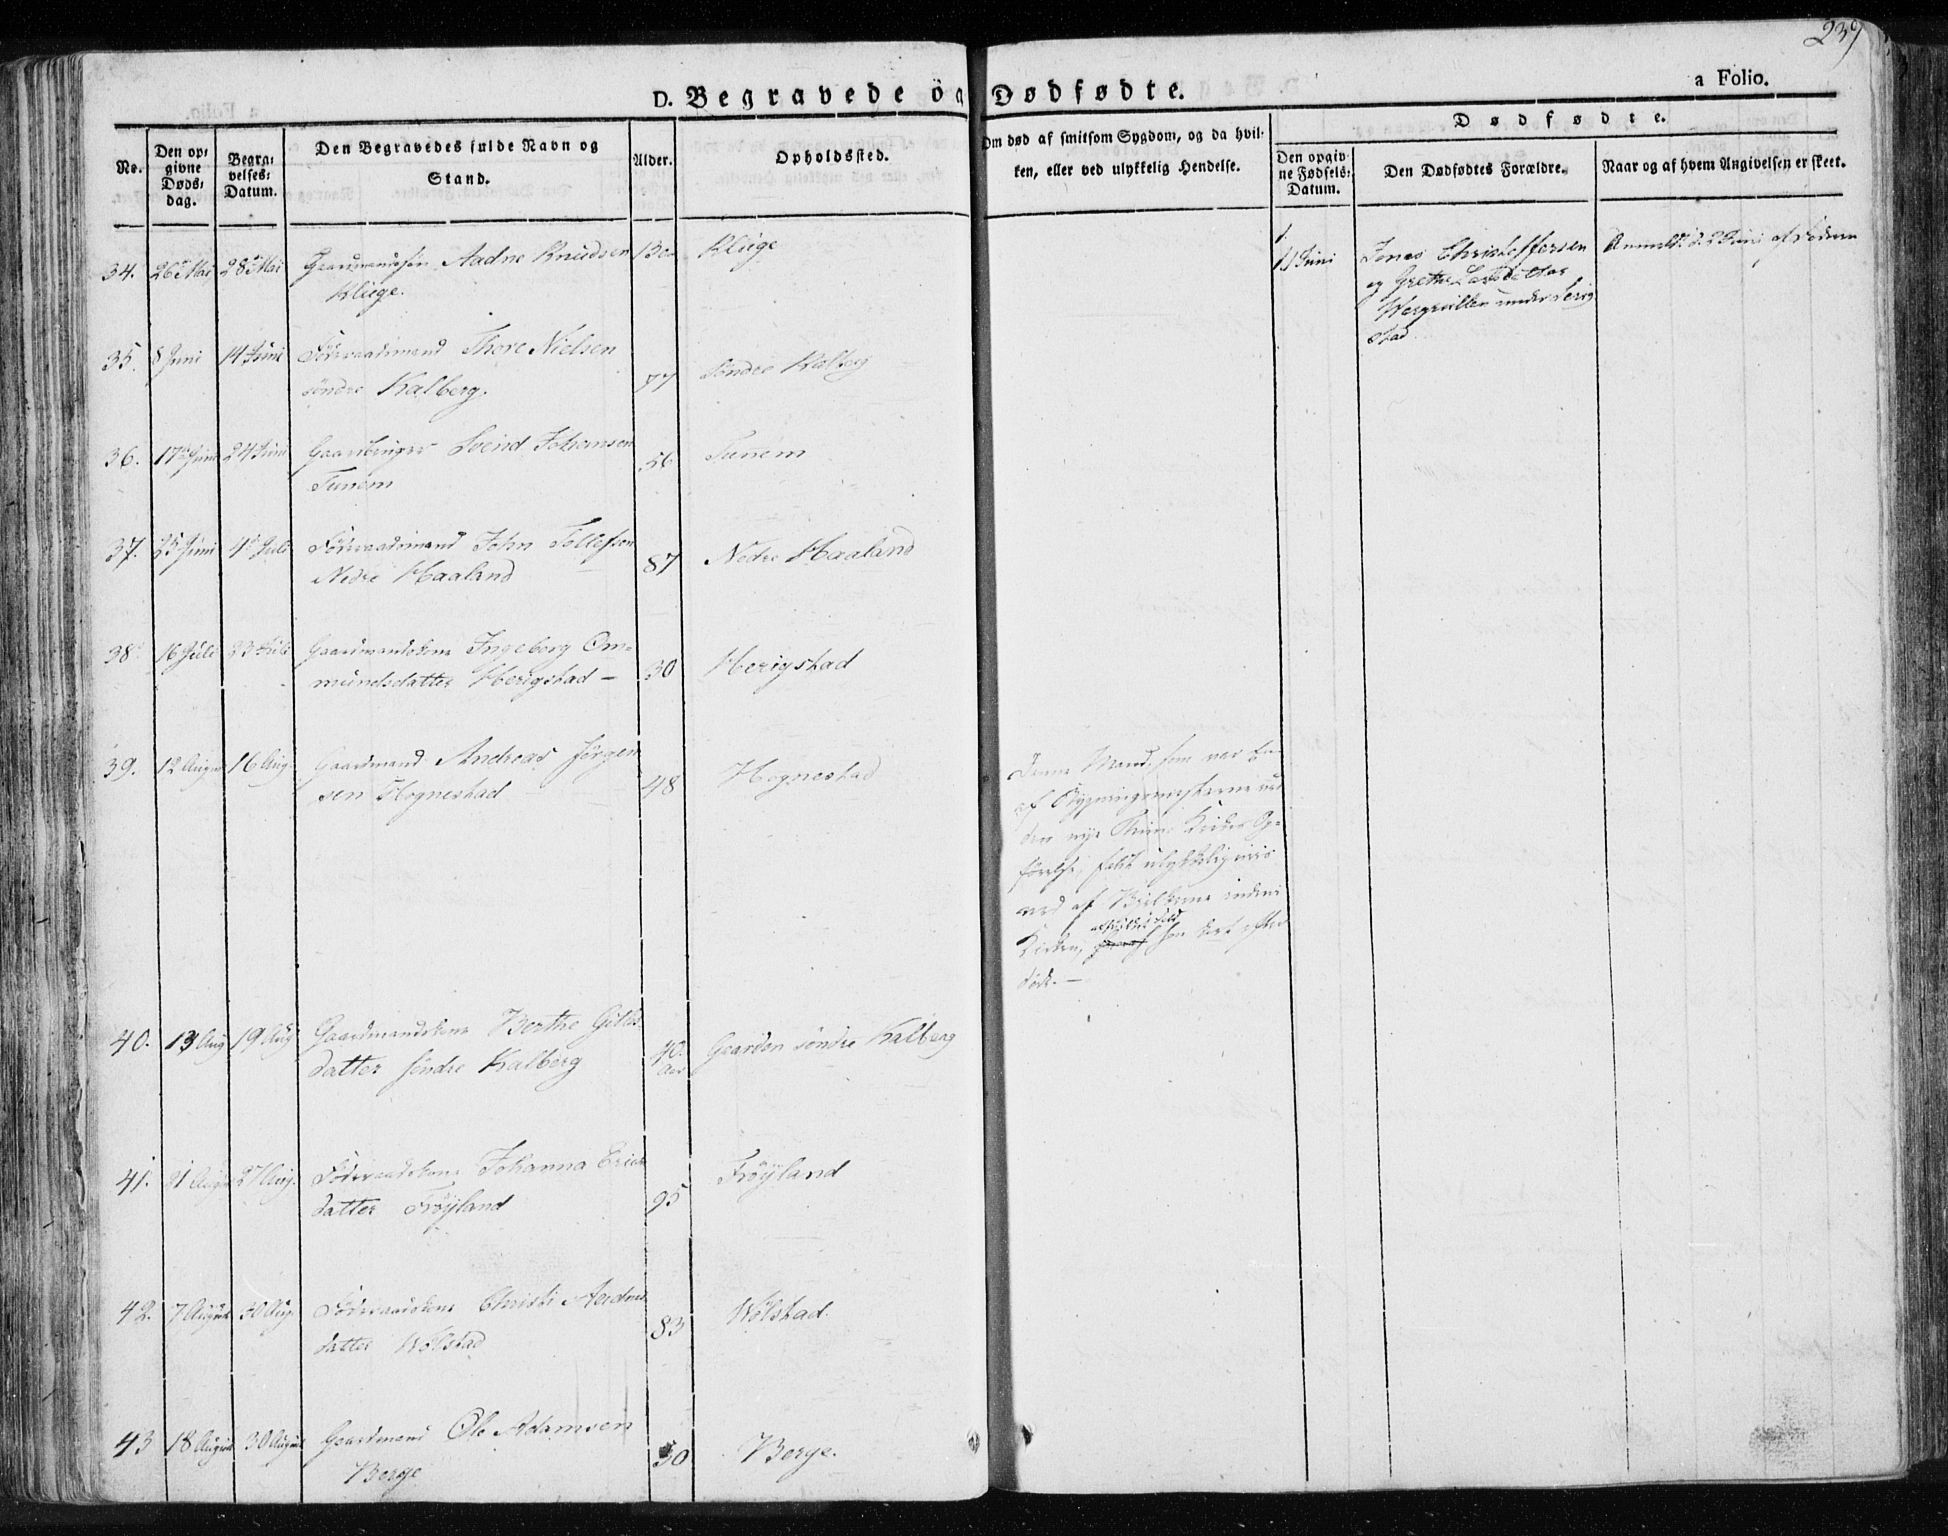 239
D. Begravede og Dødfødte.
a Folio.
No.
Den op:
givne
Døds:
dag.
Begra:
velses:
Datum.
Den Begravedes fulde Navn og
Stand.
Alder.
Opholdssted.
Om død af smitsom Sygdom, og da hvil-
ken, eller ved ulykkelig Hendelse.
Dødfødte.
Den opgiv-
ne Fødsels:
Datum.
Den Dødfødtes Forældre.
Naar og af hvem Angivelsen er skeet.
34. 26 Mai 28 Mai Gaardmandssøn Aadne Knudsen Kluge
Kluge.
1.
1 Juni Jonas Christoffersen
og Grethe
under Herig
stad
2 Juni af Faderen
35. 8 Juni 14 Juni Føderaadsmand Thore Nielsen
søndre Kalberg. 77 Søndre Kalberg
36. 17 Juni 24 Juni Gaardbruger Svend Johansen
Tunem 56 Tunem
37. 25 Juni 4 Juli Føderaadsmand John Tollefsen
Nedre Haaland 87 Nedre Haaland
38. 16 Juli 23 Juli Gaardmandskone Ingeborg Om-
mundsdatter Herigstad – 30 Herigstad
39. 12 August 16 Aug. Gaardmand Andreas Jørgen
sen Hognestad 48 Hognestad
Denne Mand, som var En
af Bygningsmesterne ved
den nye Thime Kirkes Op-
førelse, faldt ulykkeligviis
ned af Bielkerne indeni
Kirken, af hvilket Fald han kort efter
døde. –
40. 13 Aug 19 Aug Gaardmandskone Berthe Giles
datter søndre Kalberg 40. Aar Gaarden søndre Kalberg
41. 21 August 27 Aug. Føderaadskone Johanna Erics
datter Frøyland 95 Frøyland
42. 7 August 30 Aug. Føderaadskone Christi Aadnes
datter Wølstad 83 Wølstad.
43 18 August 30 August Gaardmand Ole Adamsen
Berge 50 Berge.